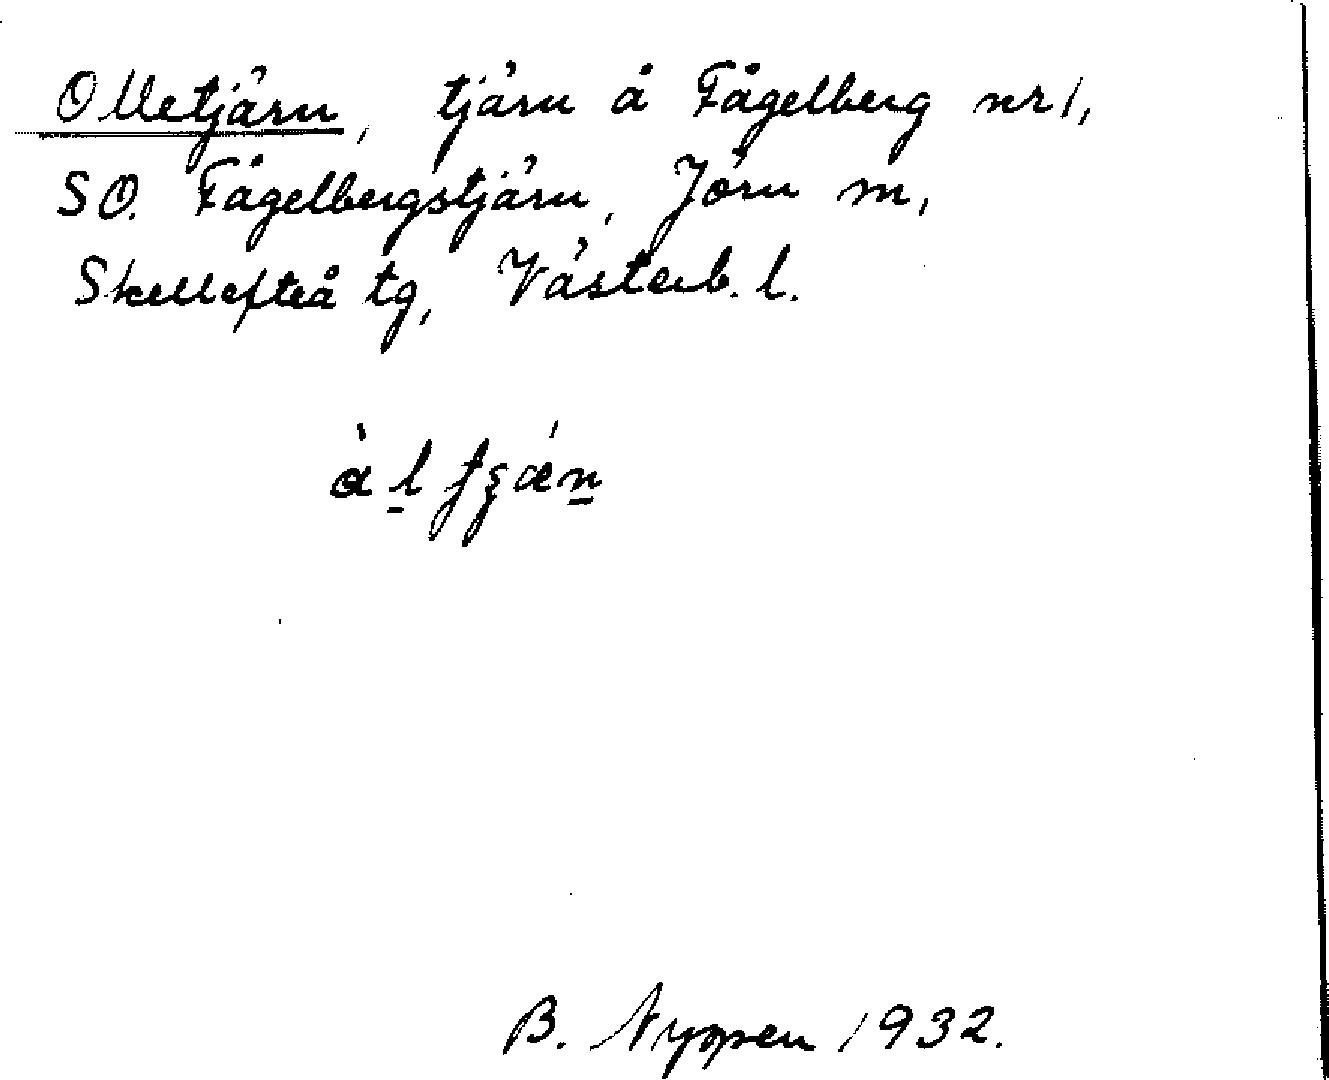 Olletjärn, tjärn å Fågelberg nr 1,
SO. Fågelbergstjärn, Jörn sn,
Skellefteå tg, Västerb. l.
B. Nyppen 1932.